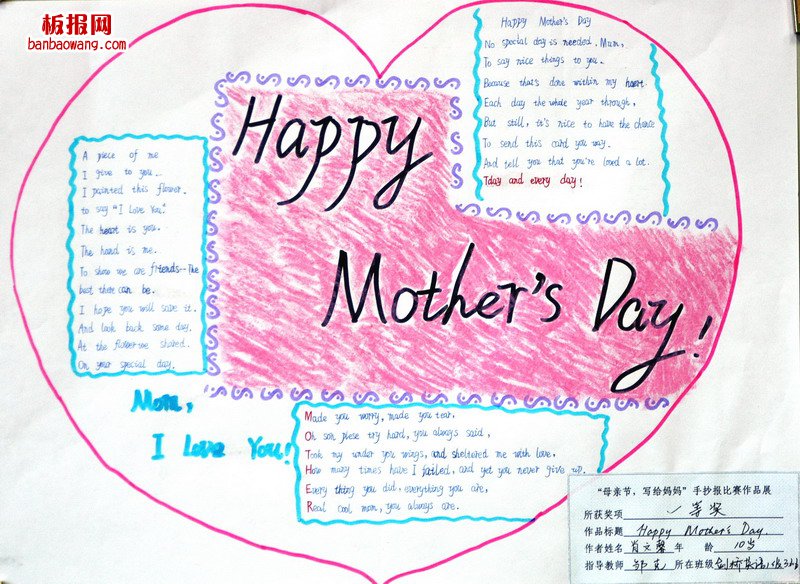 板报网
banbaowang.com
Happy
Mother's Day!
Happy Mother's Day
No special day is needed, Mum,
To say nice things to you.
Because that's done within my heart
Each day the whole year through,
But still, it's nice to have the chance
To send this card you way.
And tell you that you're loved a lot.
Tday and every day!
A piece of me
I give to you.
I painted this flower.
to say "I Love You"
The heart is you.
The hand is me.
To show we are friends--The
best there can be.
I hope you will save it.
And look back some day.
At the flower we shared.
On your special day.
Mom,
I Love You!
Made you worry, made you tear.
Oh son plese try hard, you always said,
Took my under you wings, and sheltered me with love,
How many times have I failed, and yet you never give up.
Every thing you did. everything you are,
Real cool mom, you always are.
“母亲节,写给妈妈”手抄报比赛作品展
所获奖项 一等奖
作品标题 Happy Mother's Day.
作者姓名 肖文馨 年 龄 10岁
指导教师 所在班级 剑桥英语